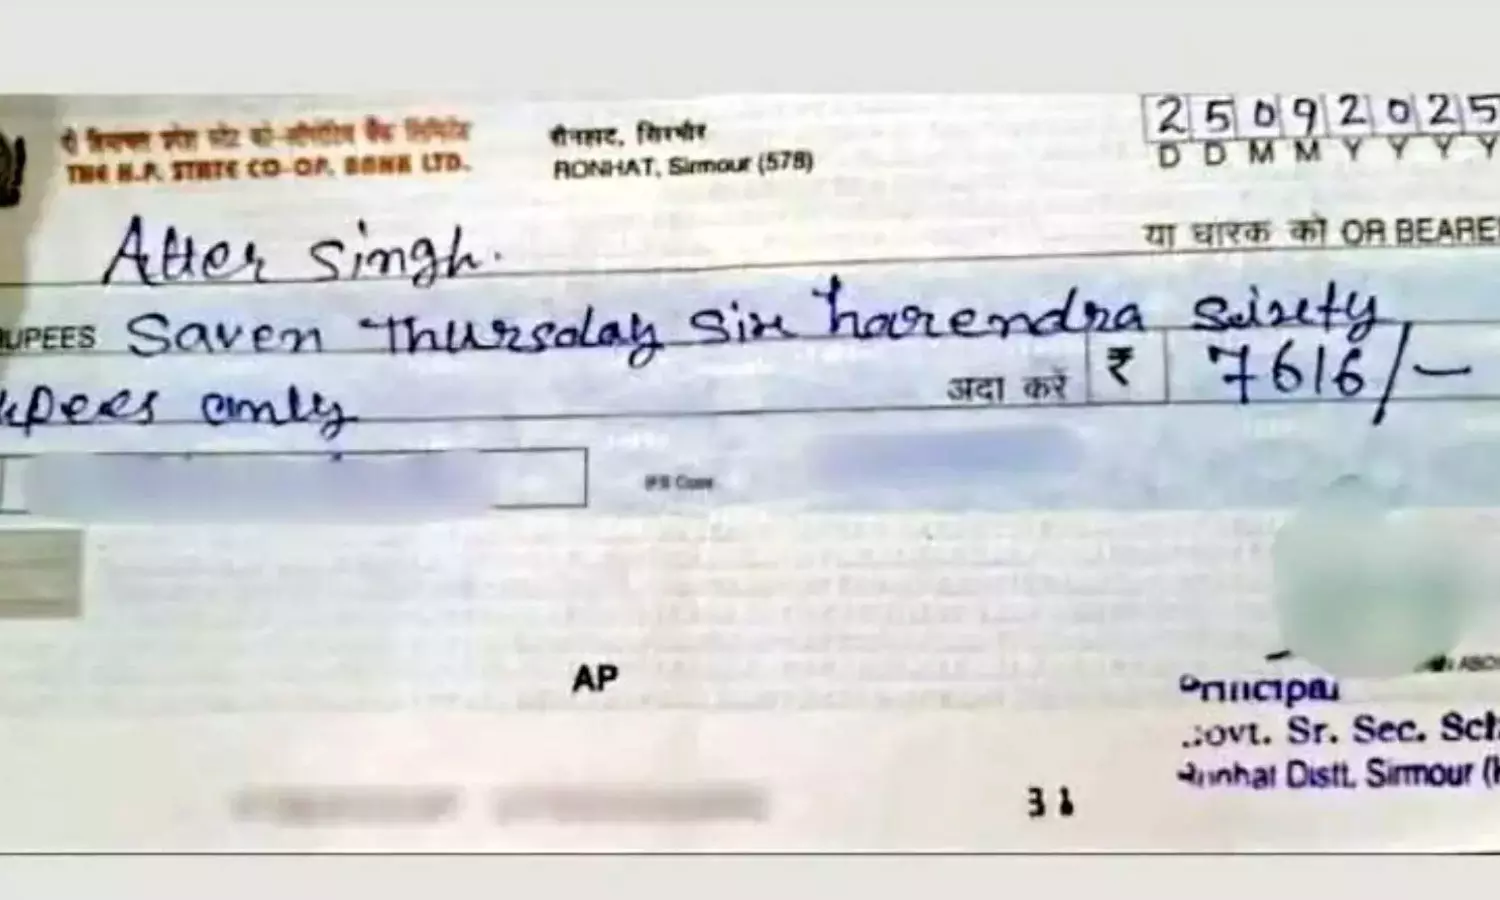 25092025
दी हिमाचल प्रदेश स्टेट को-ऑपरेटिव बैंक लिमिटेड
THE H.P. STATE CO-OP. BANK LTD.
रोनहाट, सिरमौर
RONHAT, Sirmour (578)
D D M M Y Y Y Y
Atter Singh.
या धारक को OR BEARE
RUPEES Saven Thursday Six harendra Sixety
upees only
अदा करें ₹ 7616/-
IFS Code
AP
ABO
Principal
Govt. Sr. Sec. Sch
Ronhat Distt. Sirmour (H
31